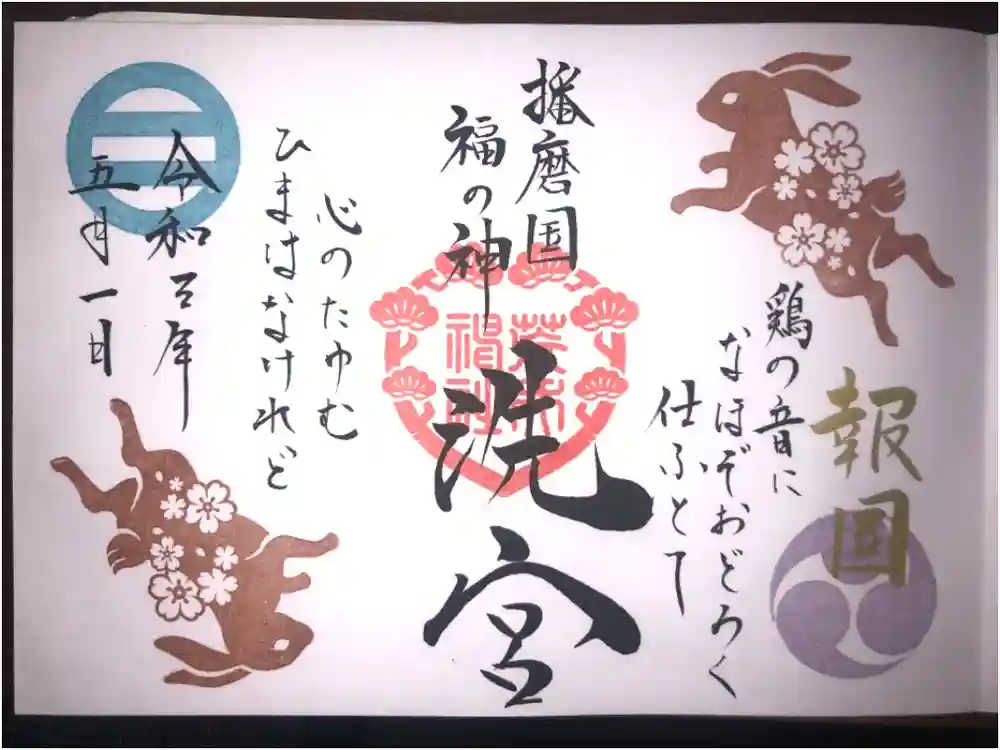 報国
鶏の音に
なほぞおどろく
仕ふとて
播磨国
福の神
洗宮
荒井
神社
心のたゆむ
ひまはなけれど
令和五年
五月一日